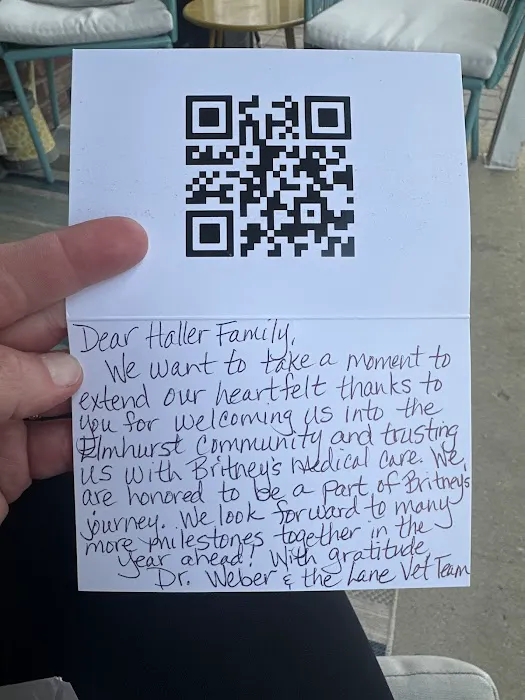 Dear Haller Family,
We want to take a moment to
extend our heartfelt thanks to
you for welcoming us into the
Elmhurst Community and trusting
us with Britney's medical care. We
are honored to be a part of Britney's
journey. We look forward to many
more milestones together in the
year ahead! With gratitude,
Dr. Weber & the Lane Vet Team